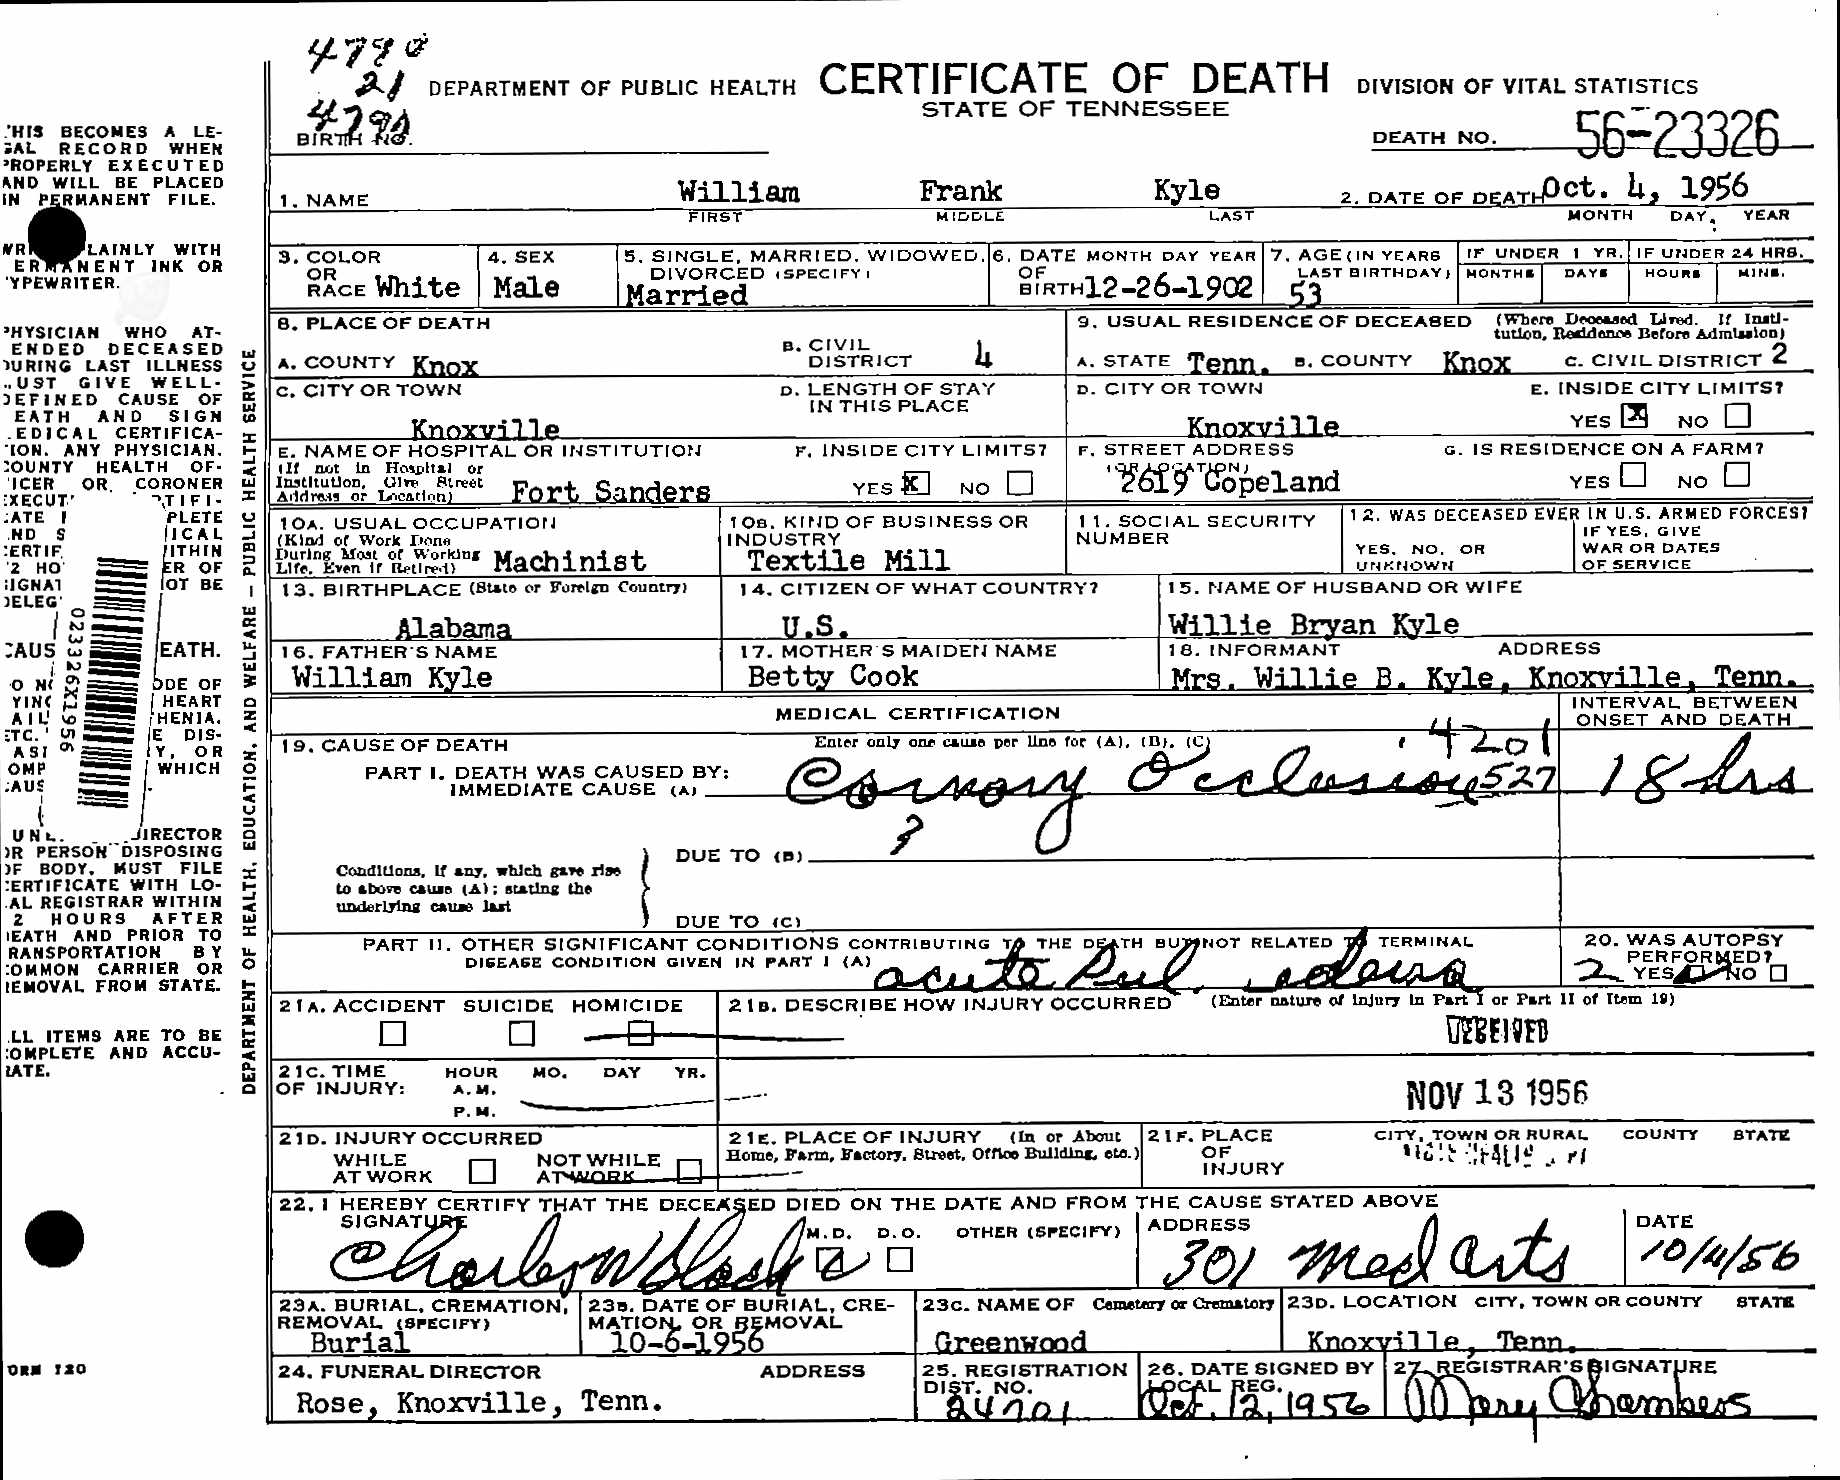 4790
21
4790
DEPARTMENT OF PUBLIC HEALTH CERTIFICATE OF DEATH DIVISION OF VITAL STATISTICS
STATE OF TENNESSEE
BIRTH NO. DEATH NO. 56-23326
1. NAME William Frank Kyle 2. DATE OF DEATH Oct. 4, 1956
FIRST MIDDLE LAST MONTH DAY, YEAR
3. COLOR OR RACE White 4. SEX Male 5. SINGLE, MARRIED, WIDOWED, DIVORCED (SPECIFY) Married 6. DATE OF BIRTH MONTH DAY YEAR 12-26-1902 7. AGE (IN YEARS LAST BIRTHDAY) 53 IF UNDER 1 YR. MONTHS DAYS IF UNDER 24 HRS. HOURS MINS.
8. PLACE OF DEATH 9. USUAL RESIDENCE OF DECEASED (Where Deceased Lived. If Insti-
tution, Residence Before Admission)
A. COUNTY Knox B. CIVIL DISTRICT 4 A. STATE Tenn. B. COUNTY Knox C. CIVIL DISTRICT 2
C. CITY OR TOWN Knoxville D. LENGTH OF STAY IN THIS PLACE D. CITY OR TOWN Knoxville E. INSIDE CITY LIMITS? YES X NO
E. NAME OF HOSPITAL OR INSTITUTION (If not in Hospital or Institution, Give Street Address or Location) Fort Sanders F. INSIDE CITY LIMITS? YES X NO F. STREET ADDRESS (OR LOCATION) 2619 Copeland G. IS RESIDENCE ON A FARM? YES NO
10A. USUAL OCCUPATION (Kind of Work Done During Most of Working Life, Even if Retired) Machinist 10B. KIND OF BUSINESS OR INDUSTRY Textile Mill 11. SOCIAL SECURITY NUMBER 12. WAS DECEASED EVER IN U.S. ARMED FORCES? YES, NO, OR UNKNOWN IF YES, GIVE WAR OR DATES OF SERVICE
13. BIRTHPLACE (State or Foreign Country) Alabama 14. CITIZEN OF WHAT COUNTRY? U.S. 15. NAME OF HUSBAND OR WIFE Willie Bryan Kyle
16. FATHER'S NAME William Kyle 17. MOTHER'S MAIDEN NAME Betty Cook 18. INFORMANT ADDRESS Mrs. Willie B. Kyle, Knoxville, Tenn.
MEDICAL CERTIFICATION INTERVAL BETWEEN ONSET AND DEATH
19. CAUSE OF DEATH Enter only one cause per line for (A), (B), (C) 4201
PART I. DEATH WAS CAUSED BY:
IMMEDIATE CAUSE (A) Cornory Occlusion 527 18 hrs
?
DUE TO (B)
Conditions, if any, which gave rise
to above cause (A); stating the
underlying cause last
DUE TO (C)
PART II. OTHER SIGNIFICANT CONDITIONS CONTRIBUTING TO THE DEATH BUT NOT RELATED TO TERMINAL
DISEASE CONDITION GIVEN IN PART I (A) acute Pul. edema 20. WAS AUTOPSY PERFORMED? 2 YES NO
21A. ACCIDENT SUICIDE HOMICIDE 21B. DESCRIBE HOW INJURY OCCURRED (Enter nature of injury in Part I or Part II of Item 19)
RECEIVED
21C. TIME OF INJURY: HOUR MO. DAY YR.
A.M.
P.M.
NOV 13 1956
21D. INJURY OCCURRED WHILE AT WORK NOT WHILE AT WORK 21E. PLACE OF INJURY (In or About Home, Farm, Factory, Street, Office Building, etc.) 21F. PLACE OF INJURY CITY, TOWN OR RURAL COUNTY STATE
22. I HEREBY CERTIFY THAT THE DECEASED DIED ON THE DATE AND FROM THE CAUSE STATED ABOVE
SIGNATURE Charles W Black M.D. D.O. OTHER (SPECIFY) ADDRESS 301 Med Arts DATE 10/4/56
23A. BURIAL, CREMATION, REMOVAL (SPECIFY) Burial 23B. DATE OF BURIAL, CREMATION, OR REMOVAL 10-6-1956 23C. NAME OF Cemetery or Crematory Greenwood 23D. LOCATION CITY, TOWN OR COUNTY STATE Knoxville, Tenn.
24. FUNERAL DIRECTOR ADDRESS Rose, Knoxville, Tenn. 25. REGISTRATION DIST. NO. 24701 26. DATE SIGNED BY LOCAL REG. Oct. 12, 1956 27. REGISTRAR'S SIGNATURE Mary Chambers
DEPARTMENT OF HEALTH, EDUCATION, AND WELFARE — PUBLIC HEALTH SERVICE
THIS BECOMES A LE-
GAL RECORD WHEN
PROPERLY EXECUTED
AND WILL BE PLACED
IN PERMANENT FILE.
LAINLY WITH
ERMANENT INK OR
YPEWRITER.
PHYSICIAN WHO AT-
ENDED DECEASED
DURING LAST ILLNESS
UST GIVE WELL-
DEFINED CAUSE OF
EATH AND SIGN
EDICAL CERTIFICA-
ION. ANY PHYSICIAN,
COUNTY HEALTH OF-
ICER OR CORONER
023326X1956
EATH.
ODE OF
HEART
HENIA,
E DIS-
Y, OR
WHICH
DIRECTOR
OR PERSON DISPOSING
OF BODY, MUST FILE
CERTIFICATE WITH LO-
AL REGISTRAR WITHIN
2 HOURS AFTER
DEATH AND PRIOR TO
RANSPORTATION BY
COMMON CARRIER OR
REMOVAL FROM STATE.
LL ITEMS ARE TO BE
COMPLETE AND ACCU-
RATE.
ORM 120